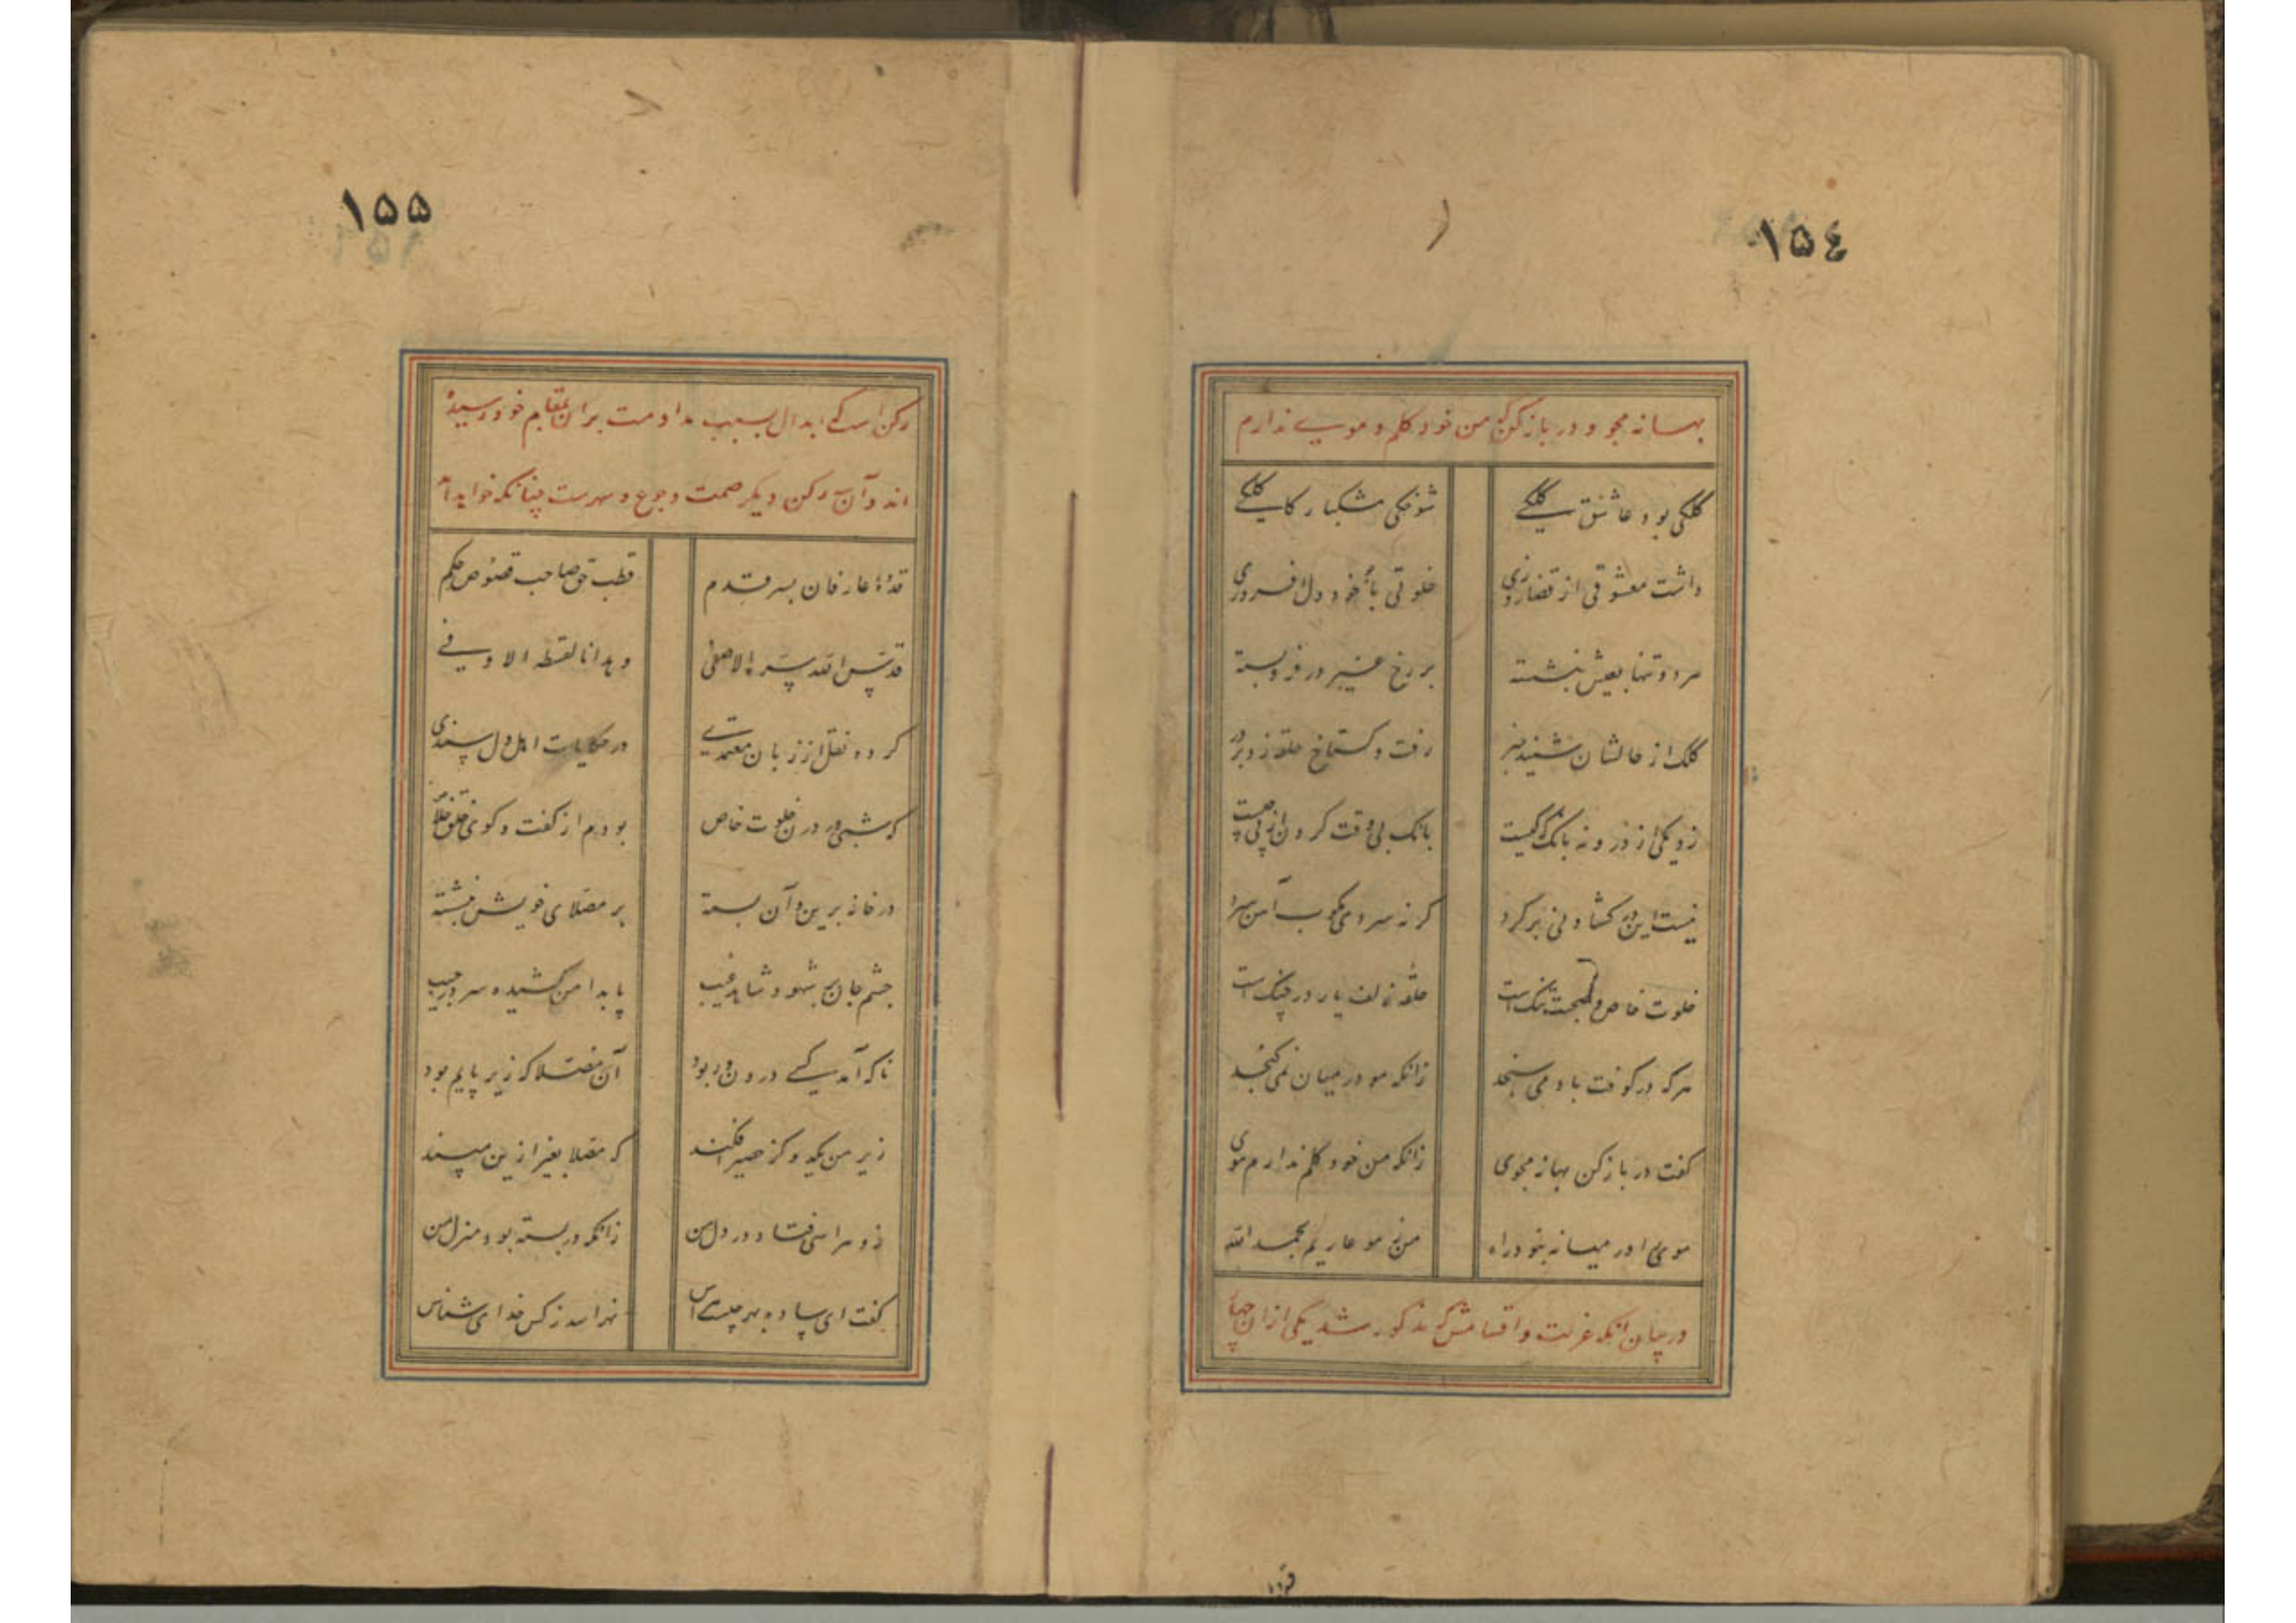 ١٥٤
بهانه مجو و در باز کن که من خود کلم و موی ندارم
کلکی بود عاشق کلکی
شوخکی شکبار کلکی
داشت معشوقی از قضا روزی
خلوتی با خرد دل افروزی
هر دو تنها بعیش بنشسته
بر رخ غیر در فرو بسته
کلک از حالشان شنید خبر
رفت و کستاخ حلقه زد بر در
زد یکی از درونه بانک که کیست
بانک بی وقت کردن از پی چیست
نیست این در کشادنی بر کرد
کر نه سردی مکوب آهن سرد
خلوت خاص و صحبت تنک است
حلقه زلف یار در چنک است
هر که در کوفت باد می سنجد
زانکه مو در میان نمی کنجد
کفت در باز کن بهانه مجوی
زانکه من خود کلم ندارم موی
موی را در میانه نبود راه
من ز مو عاریم بحمد الله
در بیان آنکه عزلت و اقسامش که مذکور شد یکی از ان چهار
١٥٥
رکن است که ابدال بسبب مداومت بران بمقام خود رسیده
اند و آن سه رکن دیکر صمت و جوع و سهرست چنانکه خواهد آمد
قدوة عارفان بسر قدم
قطب حق صاحب فصوص حکم
قدس الله سره الاصفی
و هدانا لقسطه الاوفی
کرده نقل از زبان معتمدی
در حکایات اهل دل سندی
که شبی در درون خلوت خاص
بودم از کفت و کوی خلق خلاص
در خانه برین و آن بسته
بر مصلای خویش بنشسته
چشم جان بر شهود شاهد غیب
پا بدامن کشیده سر در جیب
ناکه آمد کسی درون و ربود
آن مصلا که زیر پایم بود
زیر من یکدو کز حصیر افکند
که مصلا بغیر ازین مپسند
زو هراسی فتاد در دل من
زانکه در بسته بود منزل من
کفت ای ساده بهر چیست هراس
نهراسد ز کس خدای شناس